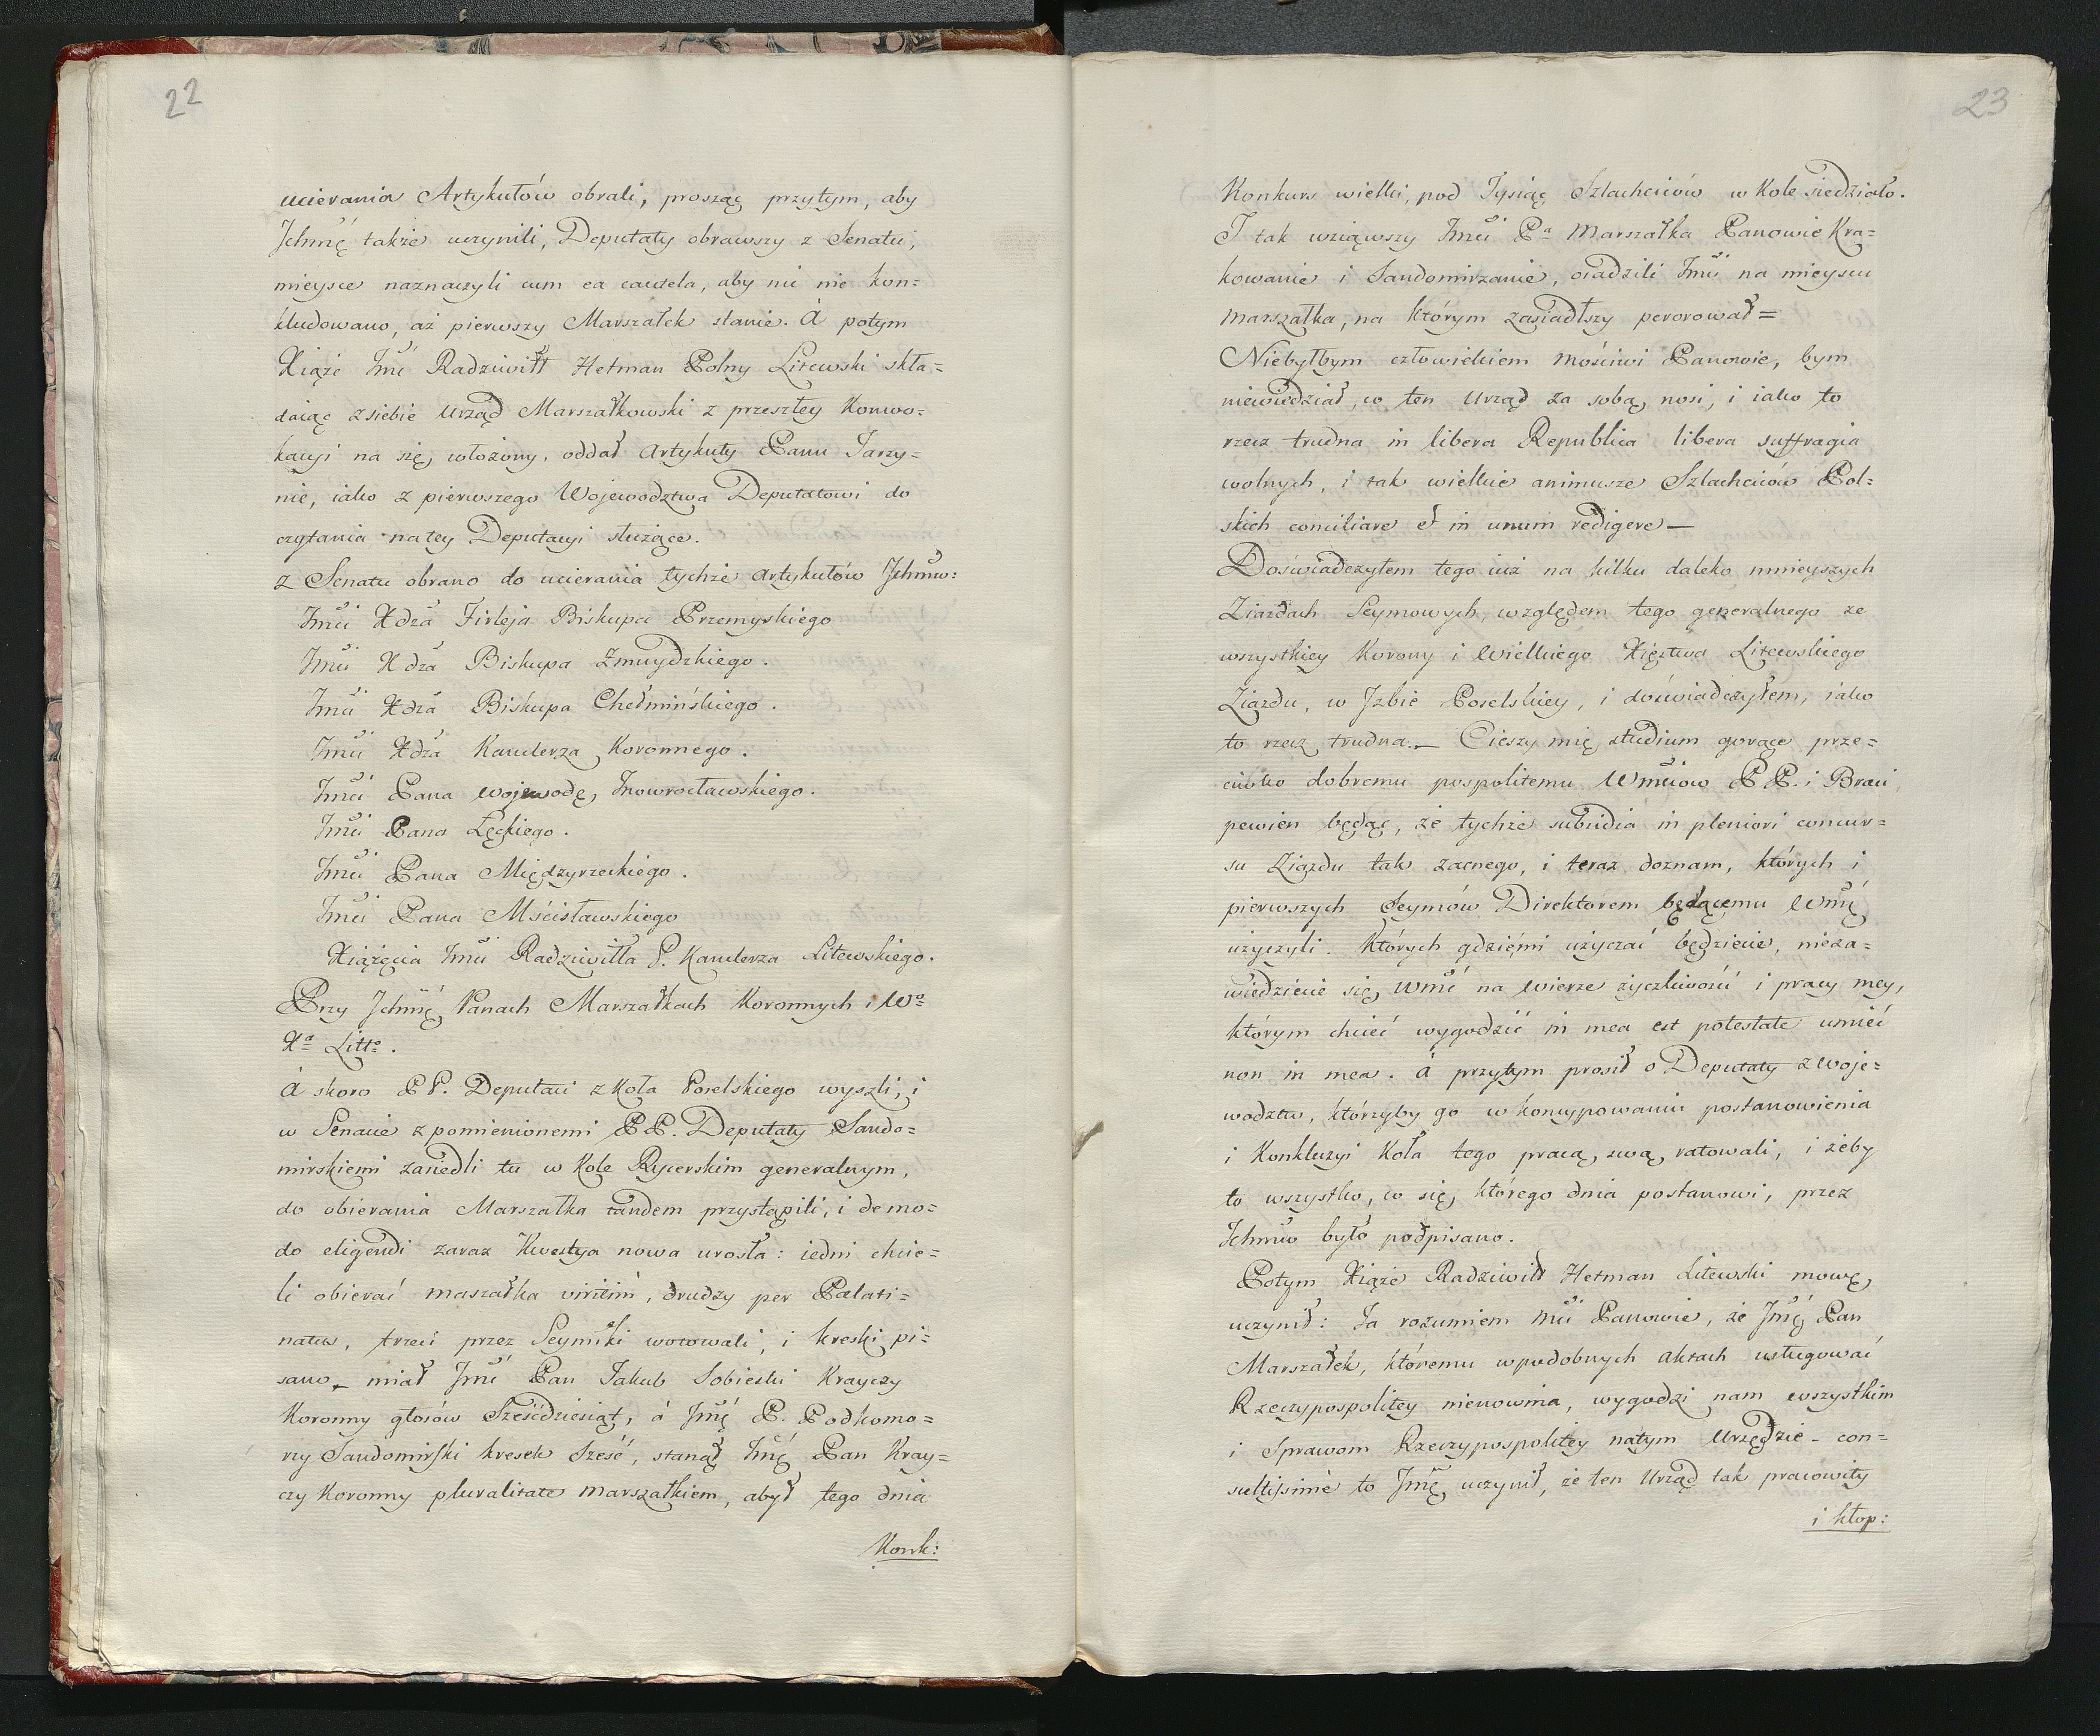 22
ucierania Artykułów obrali, prosząc przytym, aby
Jchmć także uczynili, Deputaty obrawszy z Senatu,
mieysce naznaczyli cum ea cautela, aby nic nie kon=
kludowano, aż pierwszy Marszałek stanie. á potym
Xiąże Jmć Radziwiłł Hetman Polny Litewski skła=
daiąc z siebie Urząd Marszałkowski z przeszłey Konwo=
kacyi na się włożony, oddał Artykuły Panu Jarzy=
nie, iako z pierwszego Województwa Deputatowi do
czytania na tey Deputacyi służące.
z Senatu obrano do ucierania tychże Artykułów Jchmw:
Jmći Xdza Firleja Biskupa Przemyskiego
Jmći Xdza Biskupa Zmuydzkiego.
Jmći Xdza Biskupa Chełmińskiego.
Jmći Xdza Kanclerza Koronnego.
Jmći Pana Wojewodę Jnowrocławskiego.
Jmći Pana Łęckiego.
Jmći Pana Międzyrzeckiego.
Jmći Pana Mścisławskiego
Xiążęcia Jmći Radziwiłła P. Kanclerza Litewskiego.
Przy Jchmć Panach Marszałkach Koronnych i Wo
Xa Litto.
á skoro P P. Deputaci z Koła Poselskiego wyszli, i
w Senacie z pomienionemi P P. Deputaty Sando=
mirskiemi zasiedli tu w Kole Rycerskim generalnym,
do obierania Marszałka tandem przystąpili, i de mo=
do eligendi zaraz Kwestya nowa urosła: iedni chcie=
li obierać maszałka viritim, drudzy per Palati=
natus, trzeci przez Seymiki wotowali, i kreski pi=
sano – miał Jmć Pan Jakub Sobieski Krayczy
Koronny głosów Sześćdziesiąt, á Jmć P. Podkomo=
rzy Sandomirski kresek Sześć, stanął Jmć Pan Kray=
czy Koronny pluralitate marszałkiem, a był tego dnia
Konk:
23
Konkurs wielki, pod Tysiąc Szlachciców w Kole siedziało.
I tak wziąwszy Jmći Pa Marszałka Panowie Kra=
kowanie i Sandomirzanie, osadzili Jmći na mieyscu
marszałka, na którym zasiadłszy perorował =
Niebyłbym człowiekiem Mościwi Panowie, bym
niewiedział, co ten Urząd za sobą nosi, i iako to
rzecz trudna in libera Republica libera suffragia
wolnych, i tak wielkie animusze Szlachciców Pol=
skich conciliare et in unum redigere –
Doświadczyłem tego iuż na kilku daleko mnieyszych
Ziazdach Seymowych, względem tego generalnego ze
wszystkiey Korony i Wielkiego Xięstwa Litewskiego
Ziazdu, w Jzbie Poselskiey, i doświadczyłem, iako
to rzecz trudna. – Cieszy mię studium gorące prze=
ciwko dobremu pospolitemu Wmciów P P. i Braci
pewien będąc, że tychże subsidia in pleniori concur=
su Ziazdu tak zacnego, i teraz doznam, których i
pierwszych Seymów Direktorem będącemu Wmć
użyczyli. Których gdzie mi użyczać będziecie, nieza=
wiedziecie się Wmć na wierze życzliwości i pracy mey,
którym chcieć wygodzić in mea est potestate umieć
non in mea. á przytym prosił o Deputaty z Woje=
wodztw, którzyby go w koncypowaniu postanowienia
i Konkluzyi Koła tego pracą swą ratowali, i żeby
to wszystko, co się którego dnia postanowi, przez
Jchmw było podpisano.
Potym Xiąże Radziwiłł Hetman Litewski mowę
uczynił: Ja rozumiem Mći Panowie, że Jmć Pan
Marszałek, któremu w podobnych aktach usługować
Rzeczypospolitey nienowina, wygodzi nam wszystkim
i Sprawom Rzeczypospolitey na tym Urzędzie – con=
sultissimè to Jmć uczynił, że ten Urząd tak pracowity
i kłop: